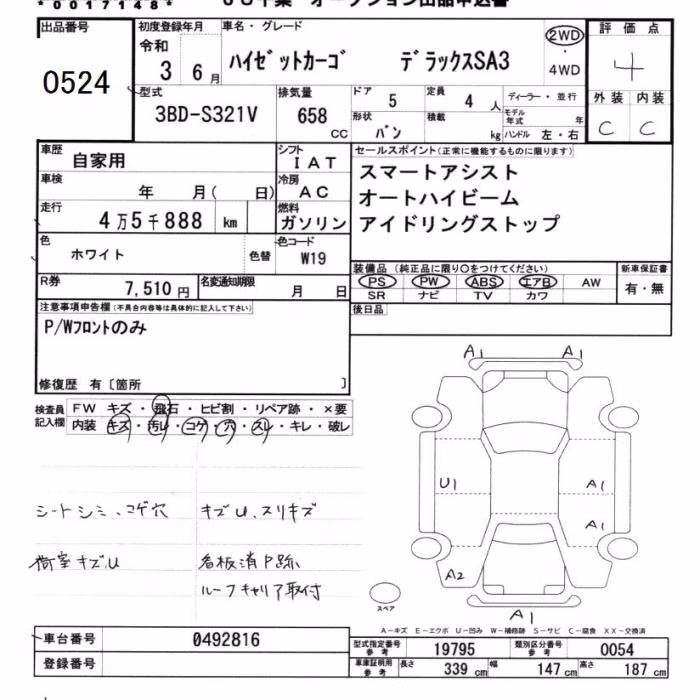 *00171484*
出品番号
0524
初度登録年月
令和
3 6月
車名・グレード
ハイゼットカーゴ デラックスSA3
2WD
・
4WD
評価点
4
外装 内装
C C
型式
3BD-S321V
排気量
658
CC
ドア
5
定員
4 人
形状
バン
積載
kg
ディーラー・並行
モデル年式 年
ハンドル 左・右
車歴
自家用
シフト
IAT
車検
年 月( 日)
冷房
AC
走行
4万5千888 km
燃料
ガソリン
色
ホワイト
色替
色コード
W19
セールスポイント(正常に機能するものに限ります)
スマートアシスト
オートハイビーム
アイドリングストップ
R券
7,510円
名変通知期限
月 日
装備品 (純正品に限り○をつけてください)
PS PW ABS エアB AW
SR ナビ TV カワ
新車保証書
有・無
後日品
注意事項申告欄(不具合内容等は具体的に記入して下さい)
P/Wフロントのみ
修復歴 有〔箇所 〕
検査員記入欄
FW キズ・飛石・ヒビ割・リペア跡・×要
内装 キズ・汚レ・コゲ・穴・スレ・キレ・破レ
シートシミ、コゲ穴
キズU、スリキズ
荷室キズU
看板消P跡
ルーフキャリア取付
A1 A1
U1
A1
A1
A2
A1
スペア
A-キズ E-エクボ U-凹み W-補修跡 S-サビ C-腐食 XX-交換済
車台番号
0492816
登録番号
型式指定番号参考
19795
類別区分番号参考
0054
車庫証明用参考
長さ 339 cm 幅 147 cm 高さ 187 cm